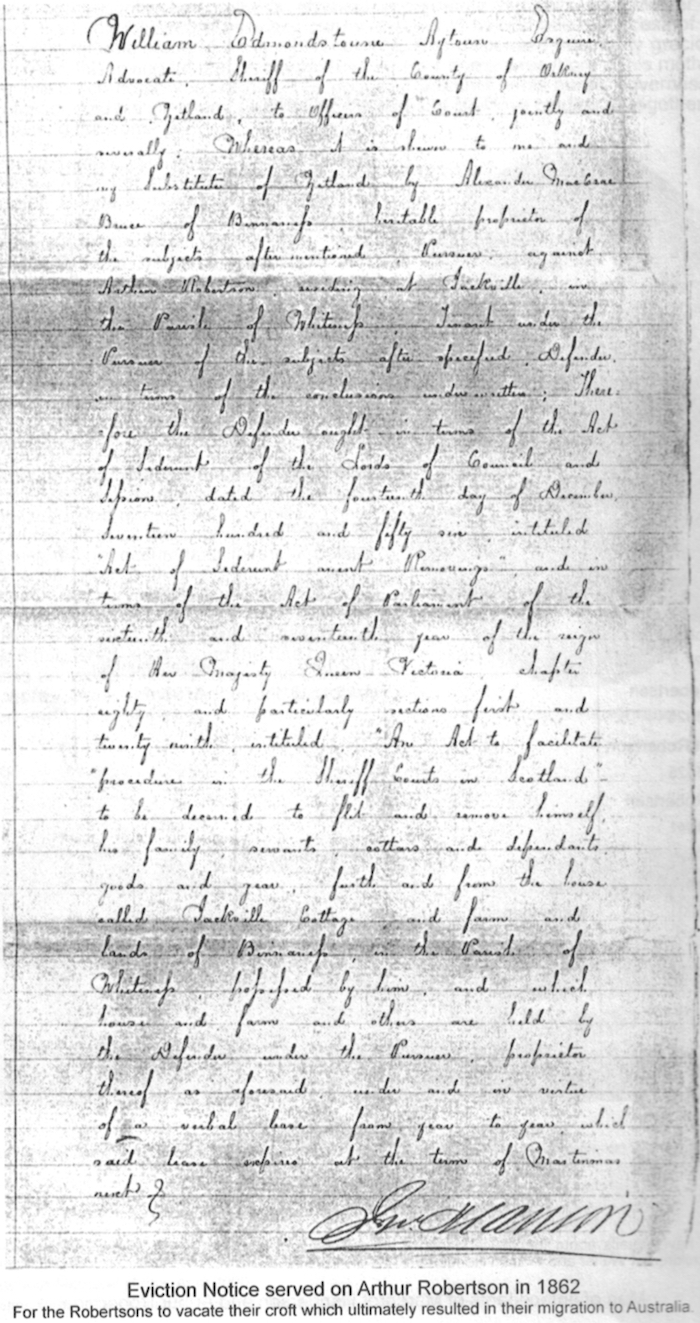 William Edmondstoune Aytoun Esquire
Advocate, Sheriff of the County of Orkney
and Zetland, to Officers of Court, jointly and
severally; Whereas it is shewn to me and
my Substitute of Zetland by Alexander MacCrae
Bruce of Binnaness, heritable proprietor of
the subjects aftermentioned, Pursuer, against
Arthur Robertson, residing at Jackville, in
the Parish of Whiteness, Tenant under the
Pursuer of the subjects after specified, Defender,
in terms of the conclusions underwritten; There-
-fore the Defender ought in terms of the Act
of Sederunt of the Lords of Council and
Session, dated the fourteenth day of December,
Seventeen hundred and fifty six, intituled
"Act of Sederunt anent Removings", and in
terms of the Act of Parliament of the
sixteenth and seventeenth year of the reign
of Her Majesty Queen Victoria, chapter
eighty, and particularly sections first and
twenty ninth, intituled, "An Act to facilitate
"procedure in the Sheriff Courts in Scotland"-
to be decerned to flit and remove himself,
his family, servants, cottars and dependants,
goods and gear, furth and from the house
called Jackville Cottage and farm and
lands of Binnaness, in the Parish of
Whiteness, possessed by him, and which
house and farm and others are held by
the Defender under the Pursuer, proprietor
thereof as aforesaid, under and in virtue
of a verbal lease from year to year, which
said lease expires at the term of Martinmas
next.
Eviction Notice served on Arthur Robertson in 1862
For the Robertsons to vacate their croft which ultimately resulted in their migration to Australia.